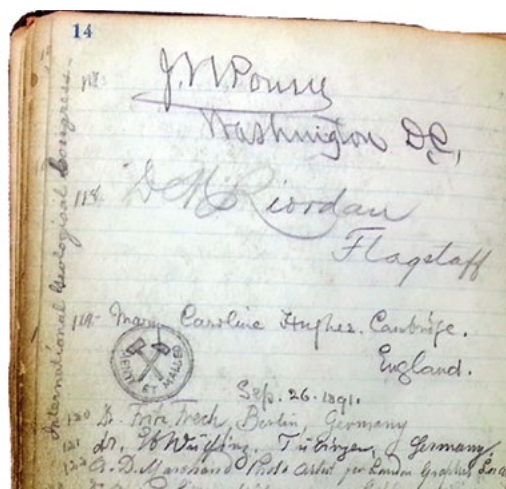 14
International Geological Congress
J. W. Powell
Washington D.C,
118. D M Riordan
Flagstaff
119. Mary Caroline Hughes. Cambridge.
England.
MENTE ET MALLEO
Sep. 26. 1891.
120 Dr. Fritz Frech, Berlin, Germany
121 Dr. Tübingen, Germany.
122 A. D. Marchand Photo Artist for London Graphic